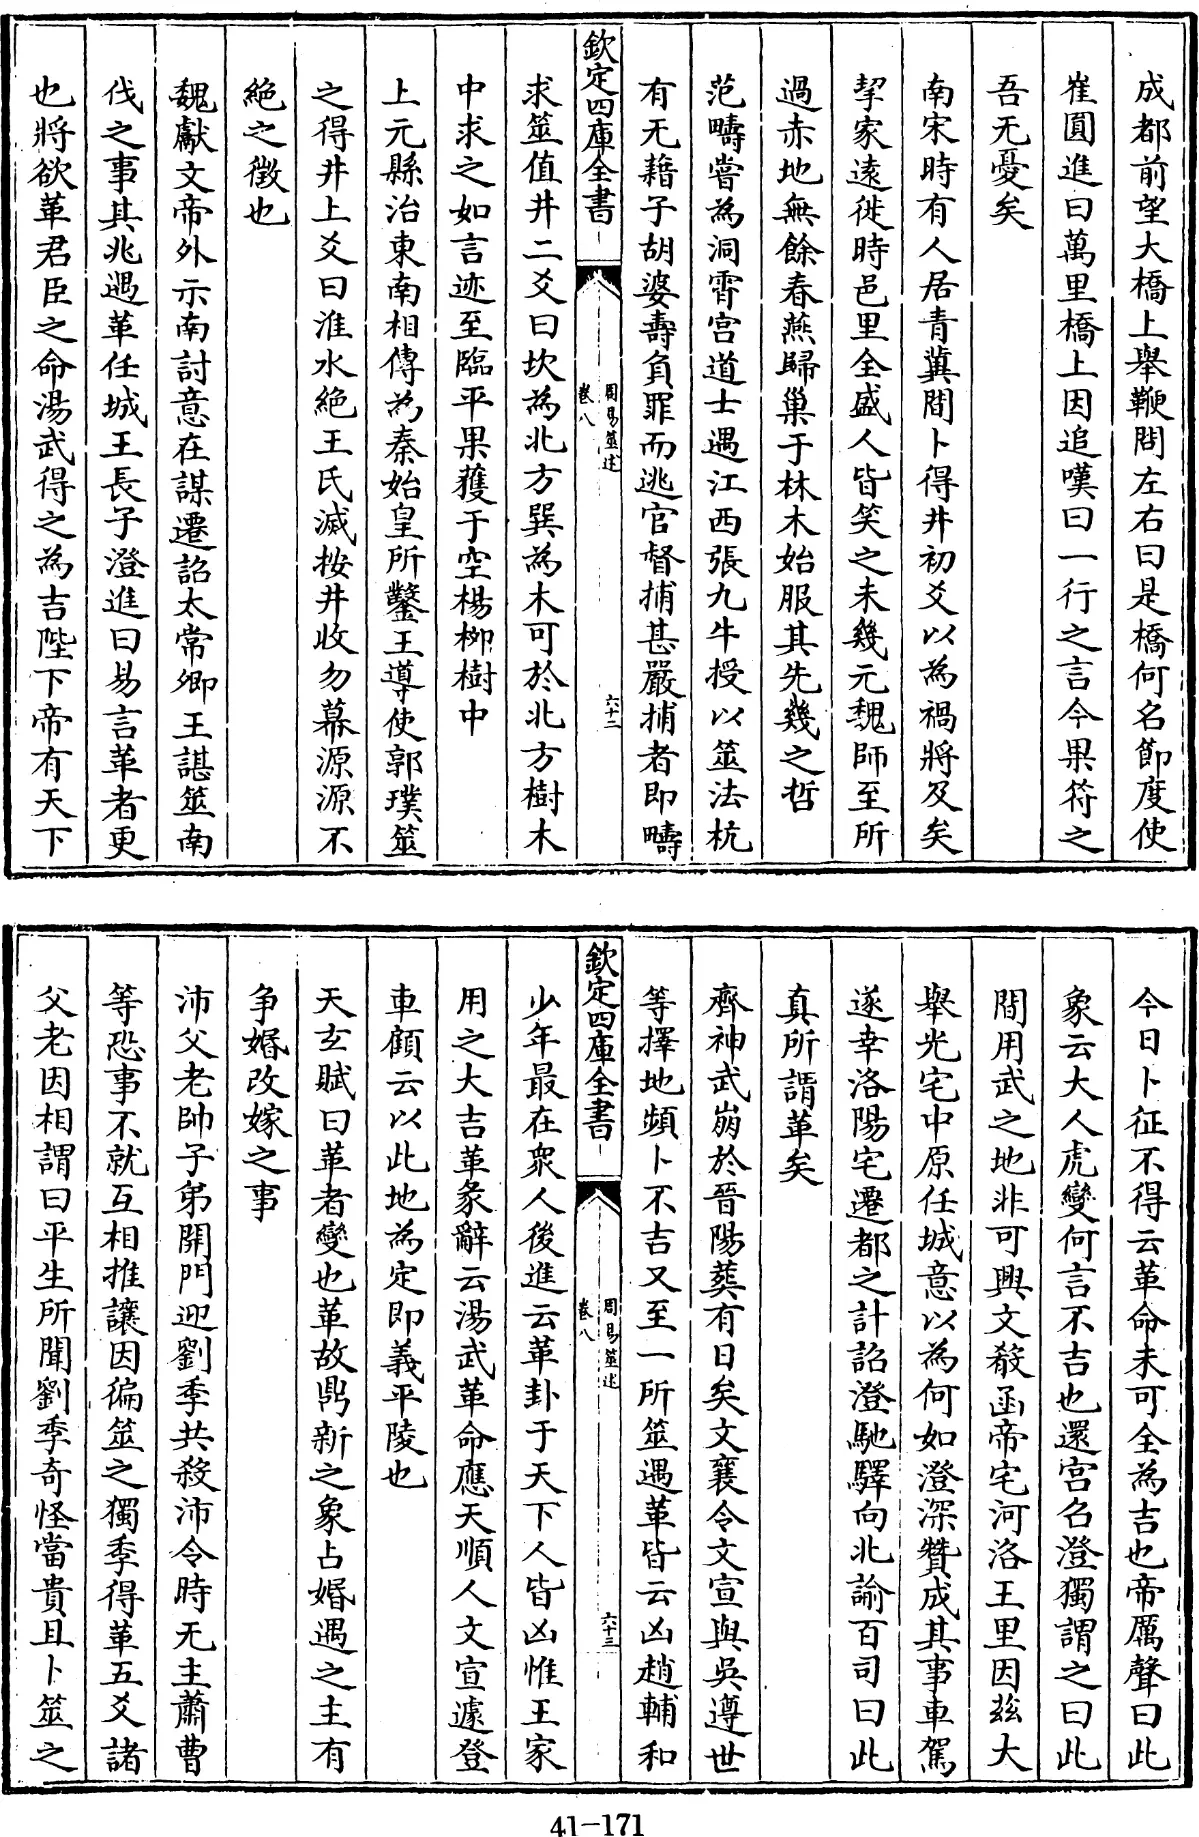 成都前望大橋上舉鞭問左右曰是橋何名節度使
崔圓進曰萬里橋上因追嘆曰一行之言今果符之
吾无憂矣
南宋時有人居青冀間卜得井初爻以為禍將及矣
挈家遠徙時邑里全盛人皆笑之未幾元魏師至所
過赤地無餘春燕歸巢于林木始服其先幾之哲
范疇嘗為洞霄宫道士遇江西張九牛授以筮法杭
有无藉子胡婆壽負罪而逃官督捕甚嚴捕者即疇
欽定四庫全書
周易筮述
卷八
六十二
求筮值井二爻曰坎為北方巽為木可於北方樹木
中求之如言迹至臨平果獲于空楊柳樹中
上元縣治東南相傳為秦始皇所鑿王導使郭璞筮
之得井上爻曰淮水絶王氏滅按井收勿幕源源不
絶之徵也
魏獻文帝外示南討意在謀遷詔太常卿王諶筮南
伐之事其兆遇革任城王長子澄進曰易言革者更
也將欲革君臣之命湯武得之為吉陛下帝有天下
今日卜征不得云革命未可全為吉也帝厲聲曰此
象云大人虎變何言不吉也還宫召澄獨謂之曰此
間用武之地非可興文殽函帝宅河洛王里因玆大
舉光宅中原任城意以為何如澄深贊成其事車駕
遂幸洛陽宅遷都之計詔澄馳驛向北諭百司曰此
真所謂革矣
齊神武崩於晉陽葬有日矣文襄令文宣與吳遵世
等擇地頻卜不吉又至一所筮遇革皆云凶趙輔和
欽定四庫全書
周易筮述
卷八
六十三
少年最在衆人後進云革卦于天下人皆凶惟王家
用之大吉革彖辭云湯武革命應天順人文宣遽登
車顧云以此地為定即義平陵也
天玄賦曰革者變也革故鼎新之象占婚遇之主有
争婚改嫁之事
沛父老帥子弟開門迎劉季共殺沛令時无主蕭曹
等恐事不就互相推讓因徧筮之獨季得革五爻諸
父老因相謂曰平生所聞劉季奇怪當貴且卜筮之
41-171